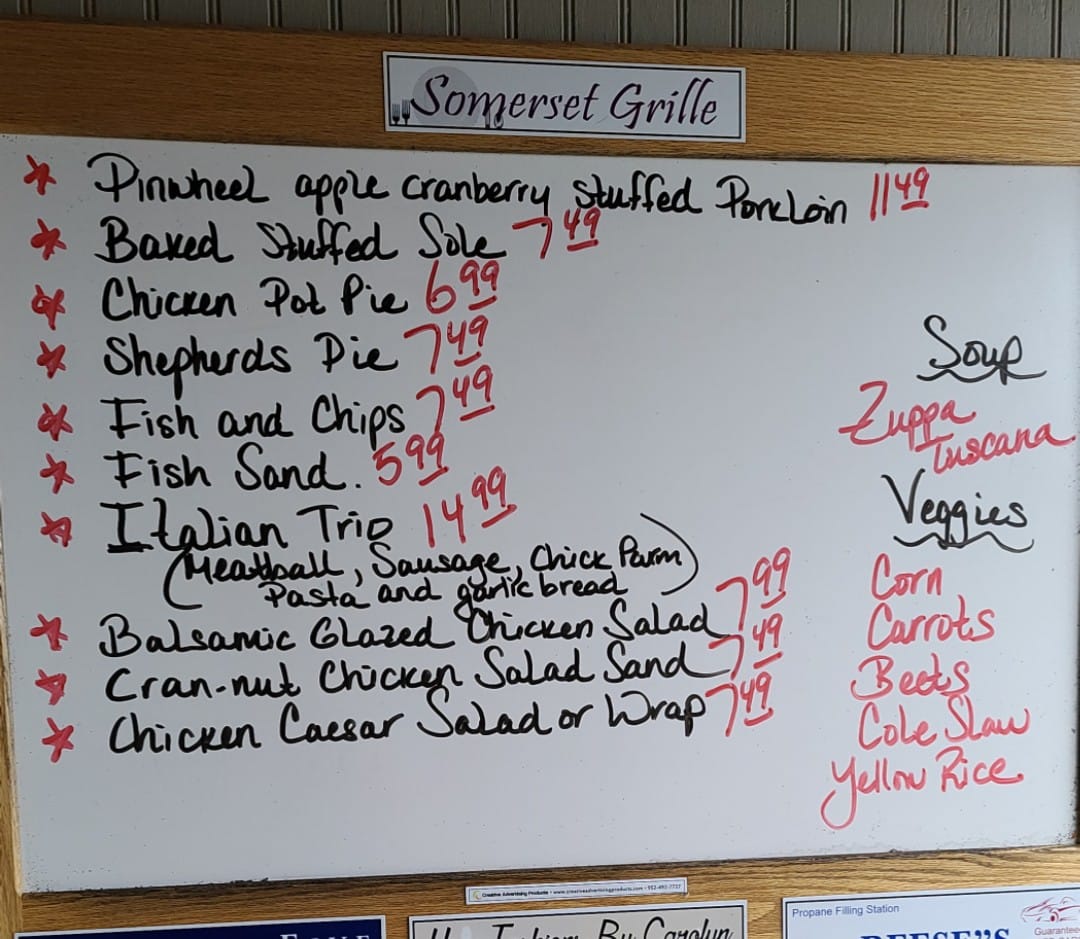 Somerset Grille
* Pinwheel apple cranberry stuffed Pork Loin 11 49
* Baked Stuffed Sole 7 49
* Chicken Pot Pie 6 99
* Shepherds Pie 7 49
* Fish and Chips 7 49
* Fish Sand. 5 99
* Italian Trio 14 99
(Meatball, Sausage, Chick Parm
Pasta and garlic bread)
* Balsamic Glazed Chicken Salad 7 99
* Cran-nut Chicken Salad Sand 7 49
* Chicken Caesar Salad or Wrap 7 49
Soup
Zuppa
Tuscana
Veggies
Corn
Carrots
Beets
Cole Slaw
Yellow Rice
Creative Advertising Products • www.creativeadvertisingproducts.com • 952-492-7727
By Carolyn
Propane Filling Station
REESE'S
Guarantee